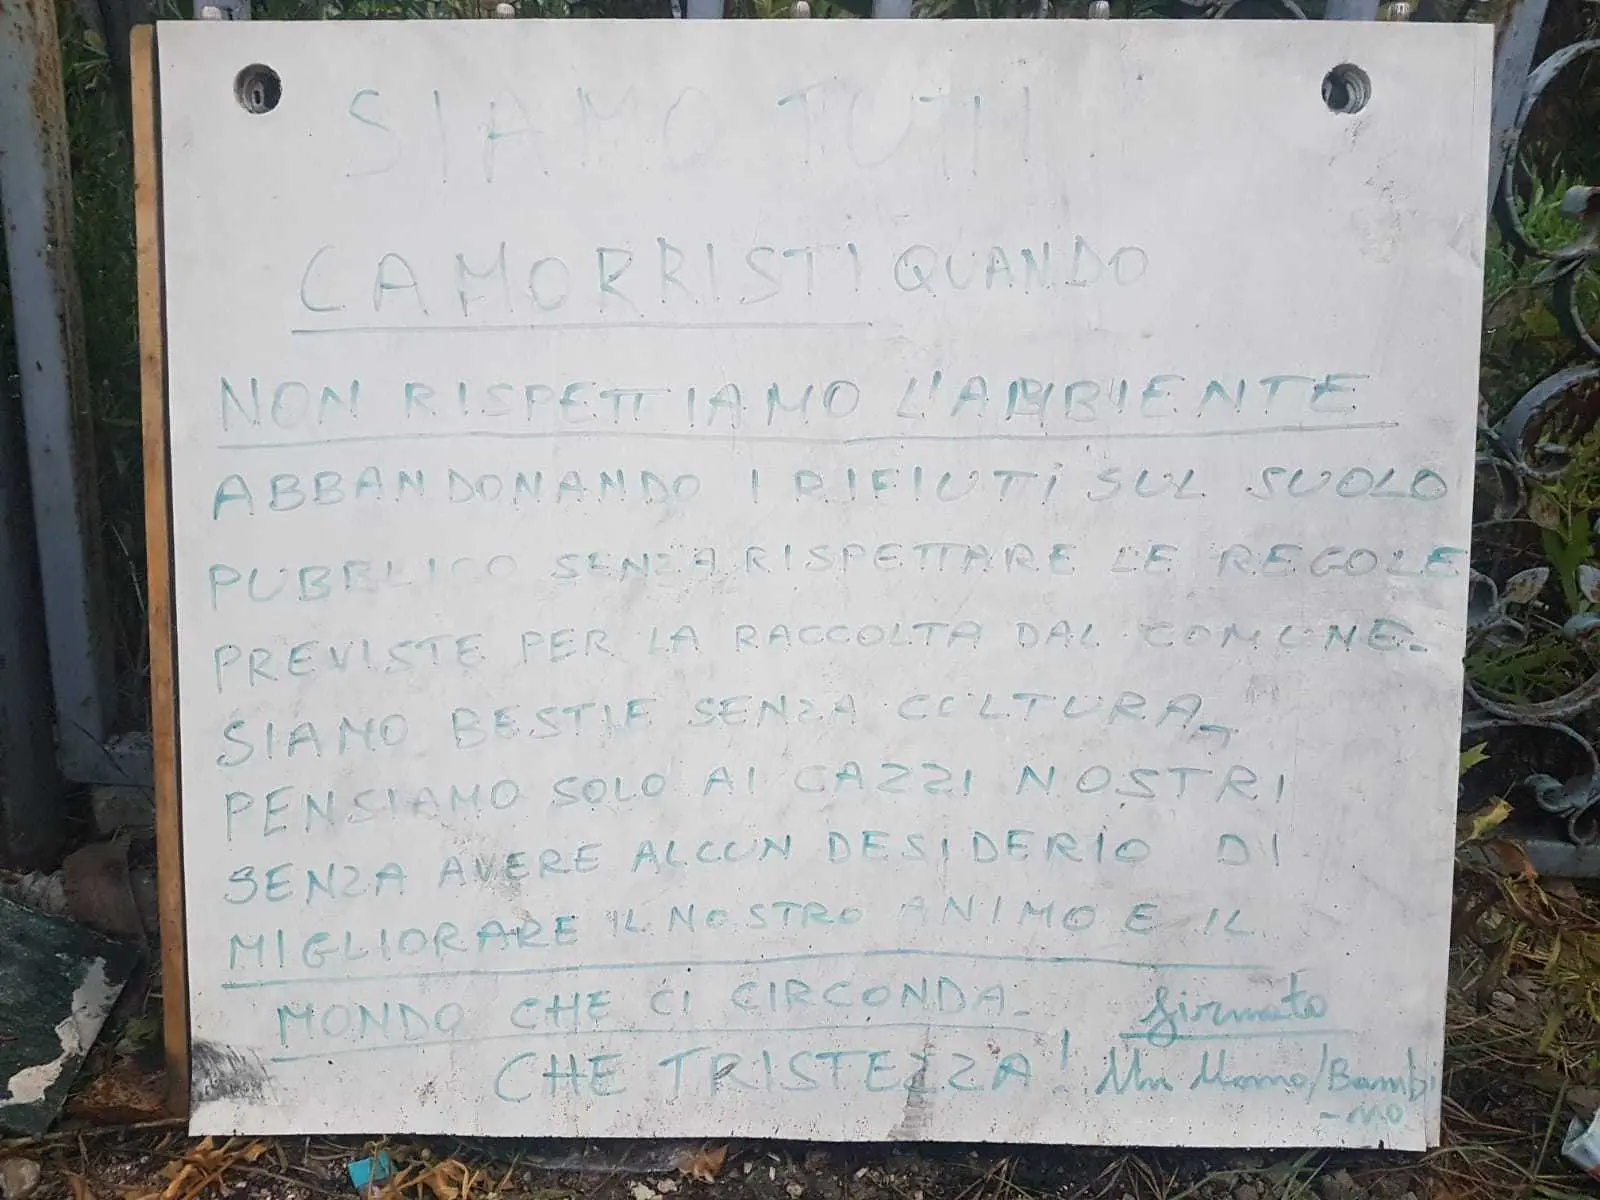 SIAMO TUTTI
CAMORRISTI QUANDO
NON RISPETTIAMO L'AMBIENTE
ABBANDONANDO I RIFIUTI SUL SUOLO
PUBBLICO SENZA RISPETTARE LE REGOLE
PREVISTE PER LA RACCOLTA DAL COMUNE.
SIAMO BESTIE SENZA CULTURA,
PENSIAMO SOLO AI CAZZI NOSTRI
SENZA AVERE ALCUN DESIDERIO DI
MIGLIORARE IL NOSTRO ANIMO E IL
MONDO CHE CI CIRCONDA.
CHE TRISTEZZA!
firmato
Un Uomo/Bambi
-NO